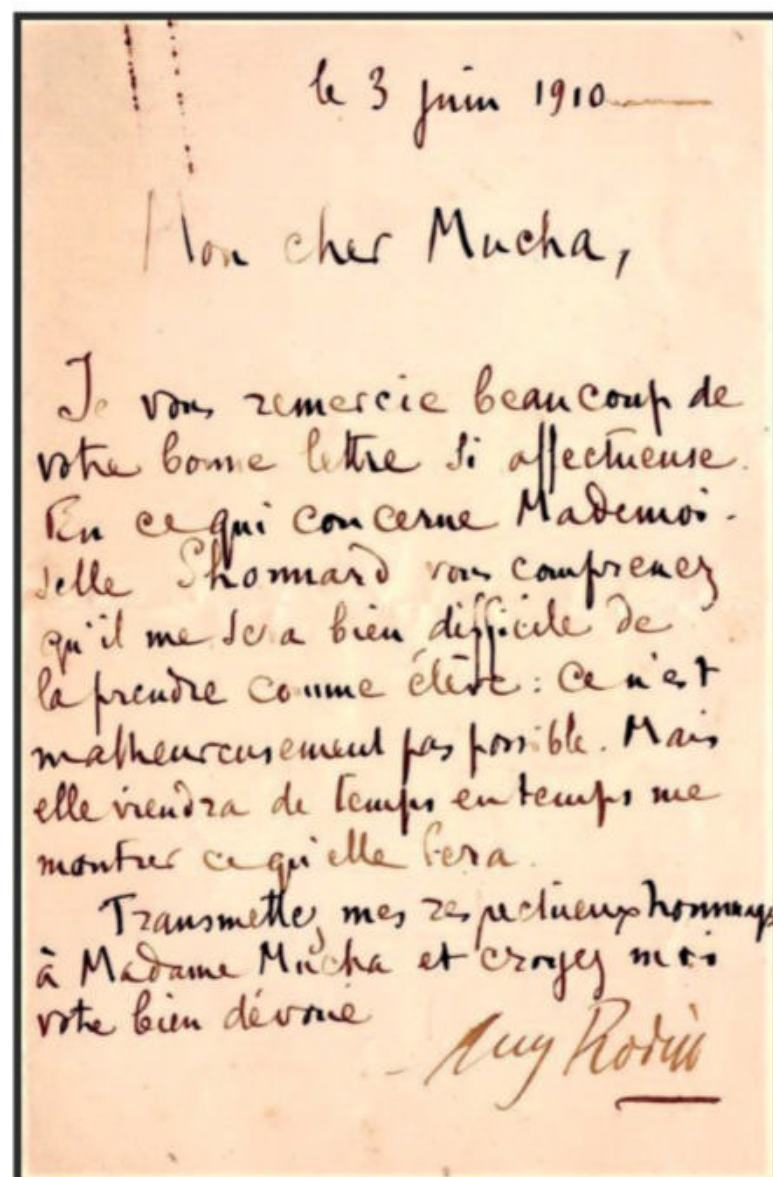 le 3 juin 1910
Mon cher Mucha,
Je vous remercie beaucoup de
votre bonne lettre si affectueuse.
En ce qui concerne Mademoi-
selle Shonnard vous comprenez
qu'il me sera bien difficile de
la prendre comme élève : ce n'est
malheureusement pas possible. Mais
elle viendra de temps en temps me
montrer ce qu'elle fera.
Transmettez mes respectueux hommages
à Madame Mucha et croyez moi
votre bien dévoué
Aug Rodin